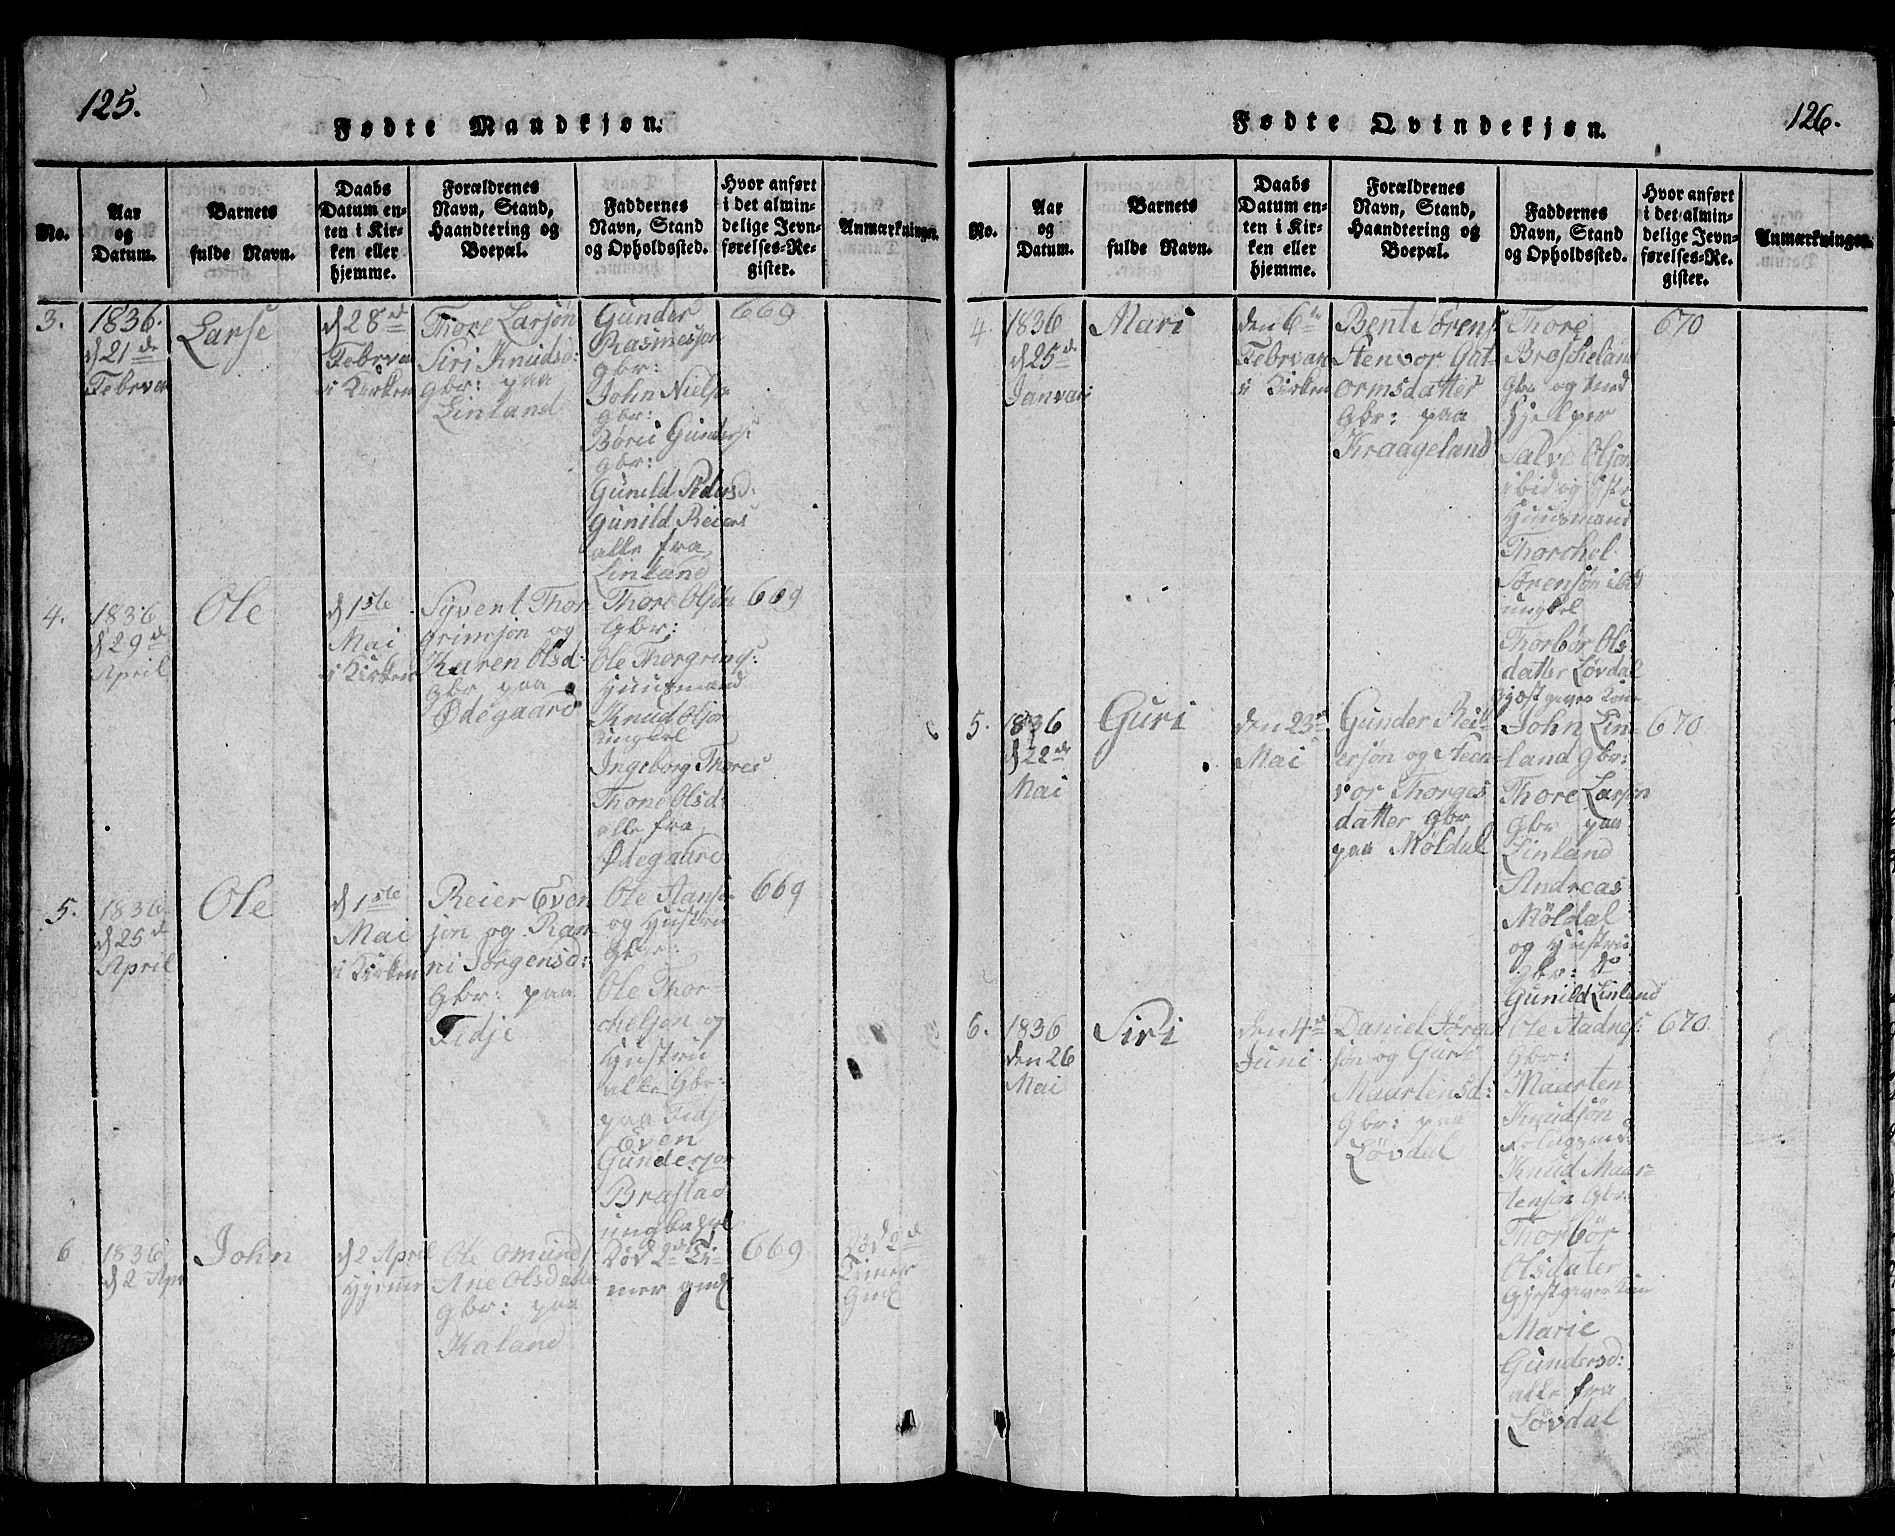 125.
Fødte Mandkjøn.
No.
Aar
og
Datum.
Barnets
fulde Navn.
Daabs
Datum en-
ten i Kir-
ken eller
hjemme.
Forældrenes
Navn, Stand,
Haandtering og
Boepæl.
Faddernes
Navn, Stand
og Opholdssted.
Hvor anført
i det almin-
delige Jevn-
førelses-Re-
gister.
Anmærkninger.
3.
1836.
d 21de
Februar
Larse
d 28d
Februar
i Kirken
Thore Larsøn
Siri Knudsd:
gbr: paa
Linland
Gunder
Rasmesøn
gbr:
John Nielsøn
gbr:
Børei Gunders:
gbr:
Gunild Pedersd:
Gunild Reiers
alle fra
Linland
669
4.
1836
d 29de
April
Ole
d 1ste
Mai
i Kirken
Syvent Thor
grimsøn og
Karen Olsd:
gbr paa
Ødegaard
Thore Olsøn
Gbr:
Ole Thorgrims:
Huusmand
Knud Olsøn
ungkel
Ingeborg Thores
Thone Olsd:
alle fra
Ødegaard
669
5.
1836
d 25de
April
Ole
d 1ste
Mai
i Kirken
Reier Even
søn og Ran
ni Jørgensd:
Gbr: paa
Fidje
Ole Hansøn
og Hustru
Gbr:
Ole Thor-
chelsøn og
Hustru
alle Gbr:
paa Fidj
Even
Gundersøn
Brastad
ungkahrl
669
6
1836
d 2 Apr
John
d 2 April
Hjemme
Ole Omunds
Ane Olsdatte
Gbr: paa
Kaland
Død 2de Ti-
mer gml
669
Død 2de
Timer
Gml
126.
Fødte Qvindekjøn.
No.
Aar
og
Datum.
Barnets
fulde Navn.
Daabs
Datum en-
ten i Kir-
ken eller
hjemme.
Forældrenes
Navn, Stand,
Haandtering og
Boepæl.
Faddernes
Navn, Stand
og Opholdssted.
Hvor anført
i det almin-
delige Jevn-
førelses-Re-
gister.
Anmærkninger.
4.
1836
d 25de
Januari
Mari
den 6te
Februar
i Kirken
Bent Sørens
Stenvor Gut-
ormsdatter
Gbr: paa
Kraageland
Thore
Broscheland
Gbr og Med
hjelper
Salve Olsøn
ibid og
Huusmand
Thorchel
Sørensøn ibid
ungkel
Thorbør Ols
datter Løvdal
Gjæstgiver Kone
670
5.
1836
d 22de
Mai
Guri
den 23de
Mai
Gunder Rei
ersøn og Steen
vor Thorges
datter Gbr
paa Møldal
John Lin
land Gbr:
Thore Larsøn
Gbr paa
Linland
Andreas
Møldal
og Hustru
Gbr: do
Gunild Linland
670
6.
1836
den 26
Mai
Siri
den 4de
Juni
Daniel Jørgen
søn og Guri
Maartensd:
Gbr: paa
Løvdal
Ole Aadnes:
Gbr:
Maarten
Knudsøn
Knud Maar-
tensøn Gbr:
Thorbør
Olsdater
Gjestgiver Kone
Marie
Gundersd:
alle fra
Løvdal
670